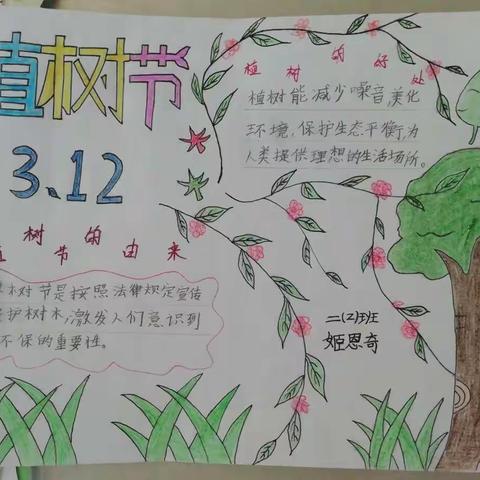 植树节
3.12
植树的好处
植树能减少噪音,美化
环境,保护生态平衡,为
人类提供理想的生活场所。
树节的由来
树节是按照法律规定宣传
护树木,激发人们意识到
环保的重要性。
二(2)班
姬恩奇